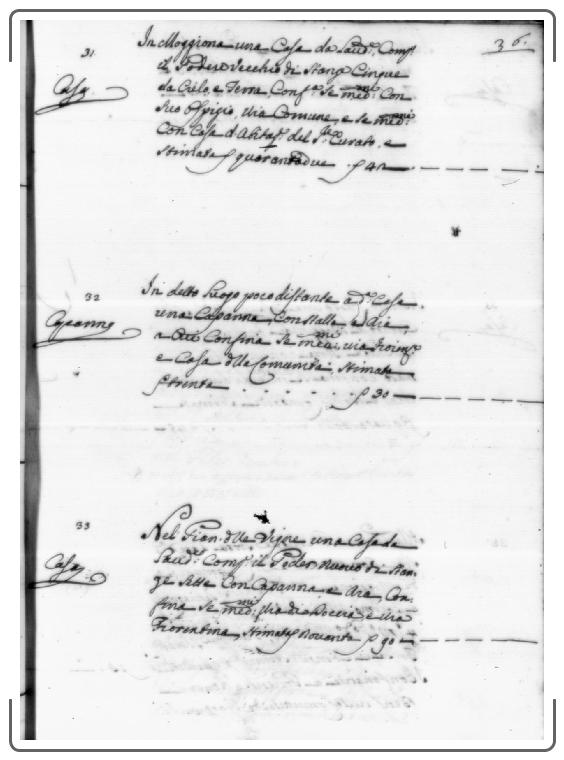 36.
31
Casa
In Moggiona una Casa da Lavo.re Comp.
il Podere Vecchio di Stanze Cinque
da Cielo, e Terra, Conf.a Se med.mi Con
suo Ospizio, Via Comune, e Se med.mi
Con Casa d'Abitaz. del S. Curato, e
Stimata p quarantadue p 42
32
Capanna
In detto Luogo poco distante a d.a Casa
una Capanna, Con Stalla, e Aia
Confina Se med.mi, via
e Casa d lla Comunità, Stimata
p trenta p 30
33
Casa
Nel Pian d lle Vigne una Casa da
Lavo.re Comp. il Poder Nuovo di Stan-
ze Sette Con Capanna, e Aia, Con-
fina Se med.mi Via di e Via
Fiorentina, Stimata p Novanta p 90